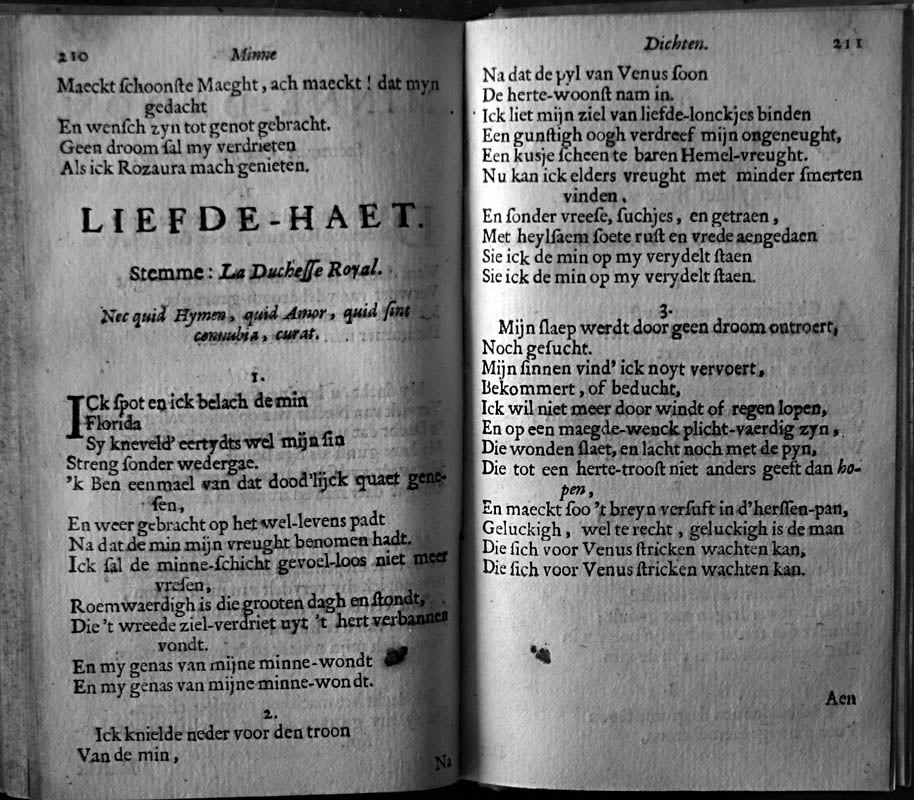 210 Minne
Maeckt ſchoonſte Maeght, ach maeckt! dat myn
gedacht
En wenſch zyn tot genot gebracht.
Geen droom ſal my verdrieten
Als ick Rozaura mach genieten.
LIEFDE-HAET.
Stemme: La Ducheſſe Royal.
Nec quid Hymen, quid Amor, quid ſint
connubia, curat.
1.
ICk ſpot en ick belach de min
Florida
Sy kneveld' eertydts wel mijn ſin
Streng ſonder wedergae.
'k Ben eenmael van dat dood'lijck quaet gene-
ſen,
En weer gebracht op het wel-levens padt
Na dat de min mijn vreught benomen hadt.
Ick ſal de minne-ſchicht gevoel-loos niet meer
vreſen,
Roemwaerdigh is die grooten dagh en ſtondt,
Die 't wreede ziel-verdriet uyt 't hert verbannen
vondt.
En my genas van mijne minne-wondt
En my genas van mijne minne-wondt.
2.
Ick knielde neder voor den troon
Van de min,
Na
Dichten. 211
Na dat de pyl van Venus ſoon
De herte-woonſt nam in.
Ick liet mijn ziel van liefde-lonckjes binden
Een gunſtigh oogh verdreef mijn ongeneught,
Een kusje ſcheen te baren Hemel-vreught.
Nu kan ick elders vreught met minder ſmerten
vinden.
En ſonder vreeſe, ſuchjes, en getraen,
Met heylſaem ſoete ruſt en vrede aengedaen
Sie ick de min op my verydelt ſtaen
Sie ick de min op my verydelt ſtaen.
3.
Mijn ſlaep werdt door geen droom ontroert,
Noch geſucht.
Mijn ſinnen vind' ick noyt vervoert,
Bekommert, of beducht,
Ick wil niet meer door windt of regen lopen,
En op een maegde-wenck plicht-vaerdig zyn,
Die wonden ſlaet, en lacht noch met de pyn,
Die tot een herte-trooſt niet anders geeft dan ho-
pen,
En maeckt ſoo 't breyn verſuft in d'herſſen-pan,
Geluckigh, wel te recht, geluckigh is de man
Die ſich voor Venus ſtricken wachten kan,
Die ſich voor Venus ſtricken wachten kan.
Aen